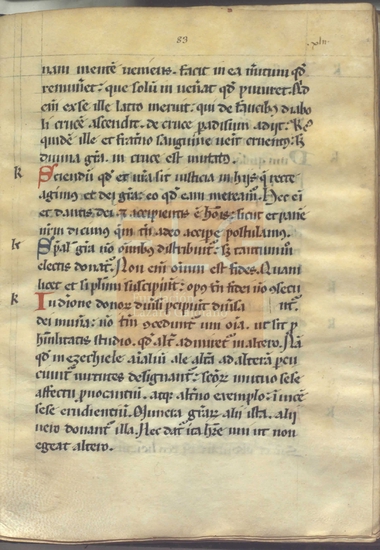 83
nam mentē uenient. facit in ea meritum qđ
remunet: que solū in uenit qđ puniret. Nā
em ex se ille latro meruit: qui de faucibus diabo
li crucē ascendit. de cruce paradisum adiit. Re
quidē ille et frat̄no sanguine uenit cruentus: sꝫ
diuina gr̄a. in cruce est mutatus.
Sciendū qđ et nr̄a sit iusticia in hijs que recte
agimus et dei gr̄a: eo qđ eam meream̄. Hec em
et dantis dei. et accipientis ē hoīs: sicut et panē
nr̄m dicimus quē tn̄ a deo accipe postulamus.
Sp̄alē gr̄a nō omibus distribuit: sꝫ tantummo
electis donat. Non em omium est fides. Quam
licet et si plurimi suscipiunt: opus tn̄ fidei nō
In diōne donor diuersi percipiunt diuersa
dei munera: nō tn̄ conceduntur uni omia. ut sit p
humilitatis studio. qđ alter admiretur in altero. Nā
qđ in ezechiele animalium ale altera ad alterā per
cuciuntur uirtutes designantur: scōr mutuo sese
affectu prouocantium. atque alterno exemplo: inuicē
sese erudientium. Munera gr̄ar alii ista. alii
uero donantur illa. Nec datur ita habere uni ut non
egeat altero.